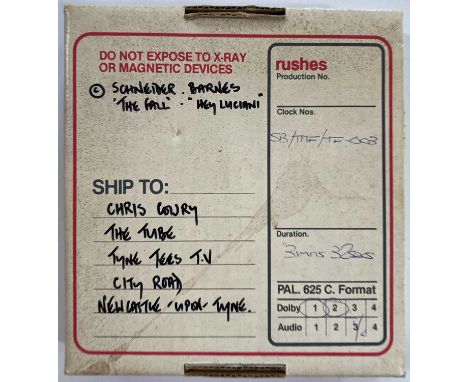 DO NOT EXPOSE TO X-RAY
OR MAGNETIC DEVICES
© SCHNEIDER . BARNES
"THE FALL" . "HEY LUCIANI"
SHIP TO:
CHRIS COWRY
THE TUBE
TYNE TEES T.V
CITY ROAD
NEWCASTLE - UPON - TYNE.
rushes
Production No.
Clock Nos.
SB/THF/TF-003
Duration.
3mins 33secs
PAL. 625 C. Format
Dolby 1 2 3 4
Audio 1 2 3 4